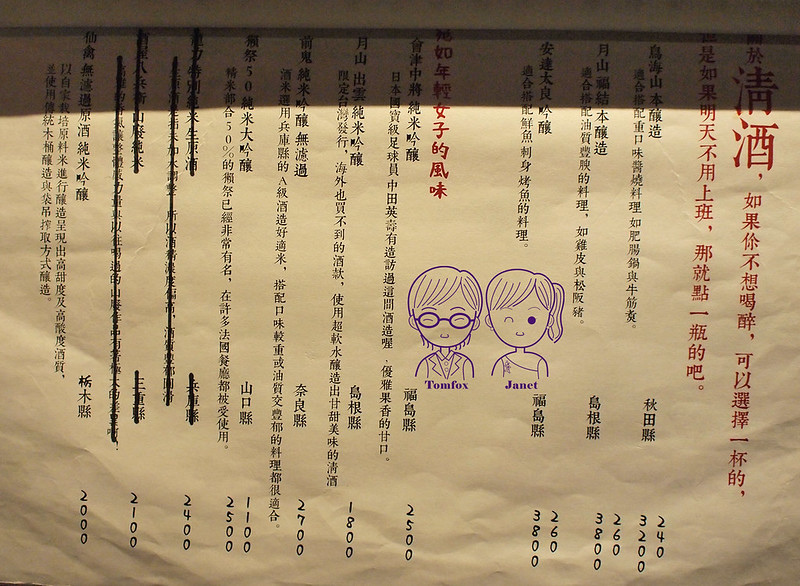 關於清酒，如果你不想喝醉，可以選擇一杯的，
但是如果明天不用上班，那就點一瓶的吧。
鳥海山 本釀造 秋田縣 240 3200
適合搭配重口味醬燒料理 如肥腸鍋與牛筋煲。
月山 福結 本釀造 島根縣 260 3800
適合搭配油質豐腴的料理，如雞皮與松阪豬。
安達太良 吟釀 福島縣 260 3800
適合搭配鮮魚刺身 烤魚的料理。
宛如年輕女子的風味
會津中將 純米吟釀 福島縣 2500
日本國寶級足球員 中田英壽有造訪過這間酒造喔，優雅果香的甘口。
月山 出雲 純米吟釀 島根縣 1800
限定台灣發行，海外也買不到的酒款，使用超軟水釀造出甘甜美味的清酒
前鬼 純米吟釀 無濾過 奈良縣 2700
酒米選用兵庫縣的A級酒造好適米，搭配口味較重或油質交豐郁的料理都很適合。
獺祭50 純米大吟釀 山口縣 1100 2500
精米部合50%的獺祭已經非常有名，在許多法國餐廳都被受使用。
特別純米 生原酒 兵庫縣 2400
所以酒精濃度偏高，酒質豐郁圓滑
八兵衛 山廢純米 三重縣 2100
仙禽 無濾過原酒 純米吟釀 栃木縣 2000
以自家栽培原料米進行釀造呈現出高甜度及高酸度酒質，
並使用傳統木桶釀造與袋吊搾取方式釀造。
Tomfox
Janet